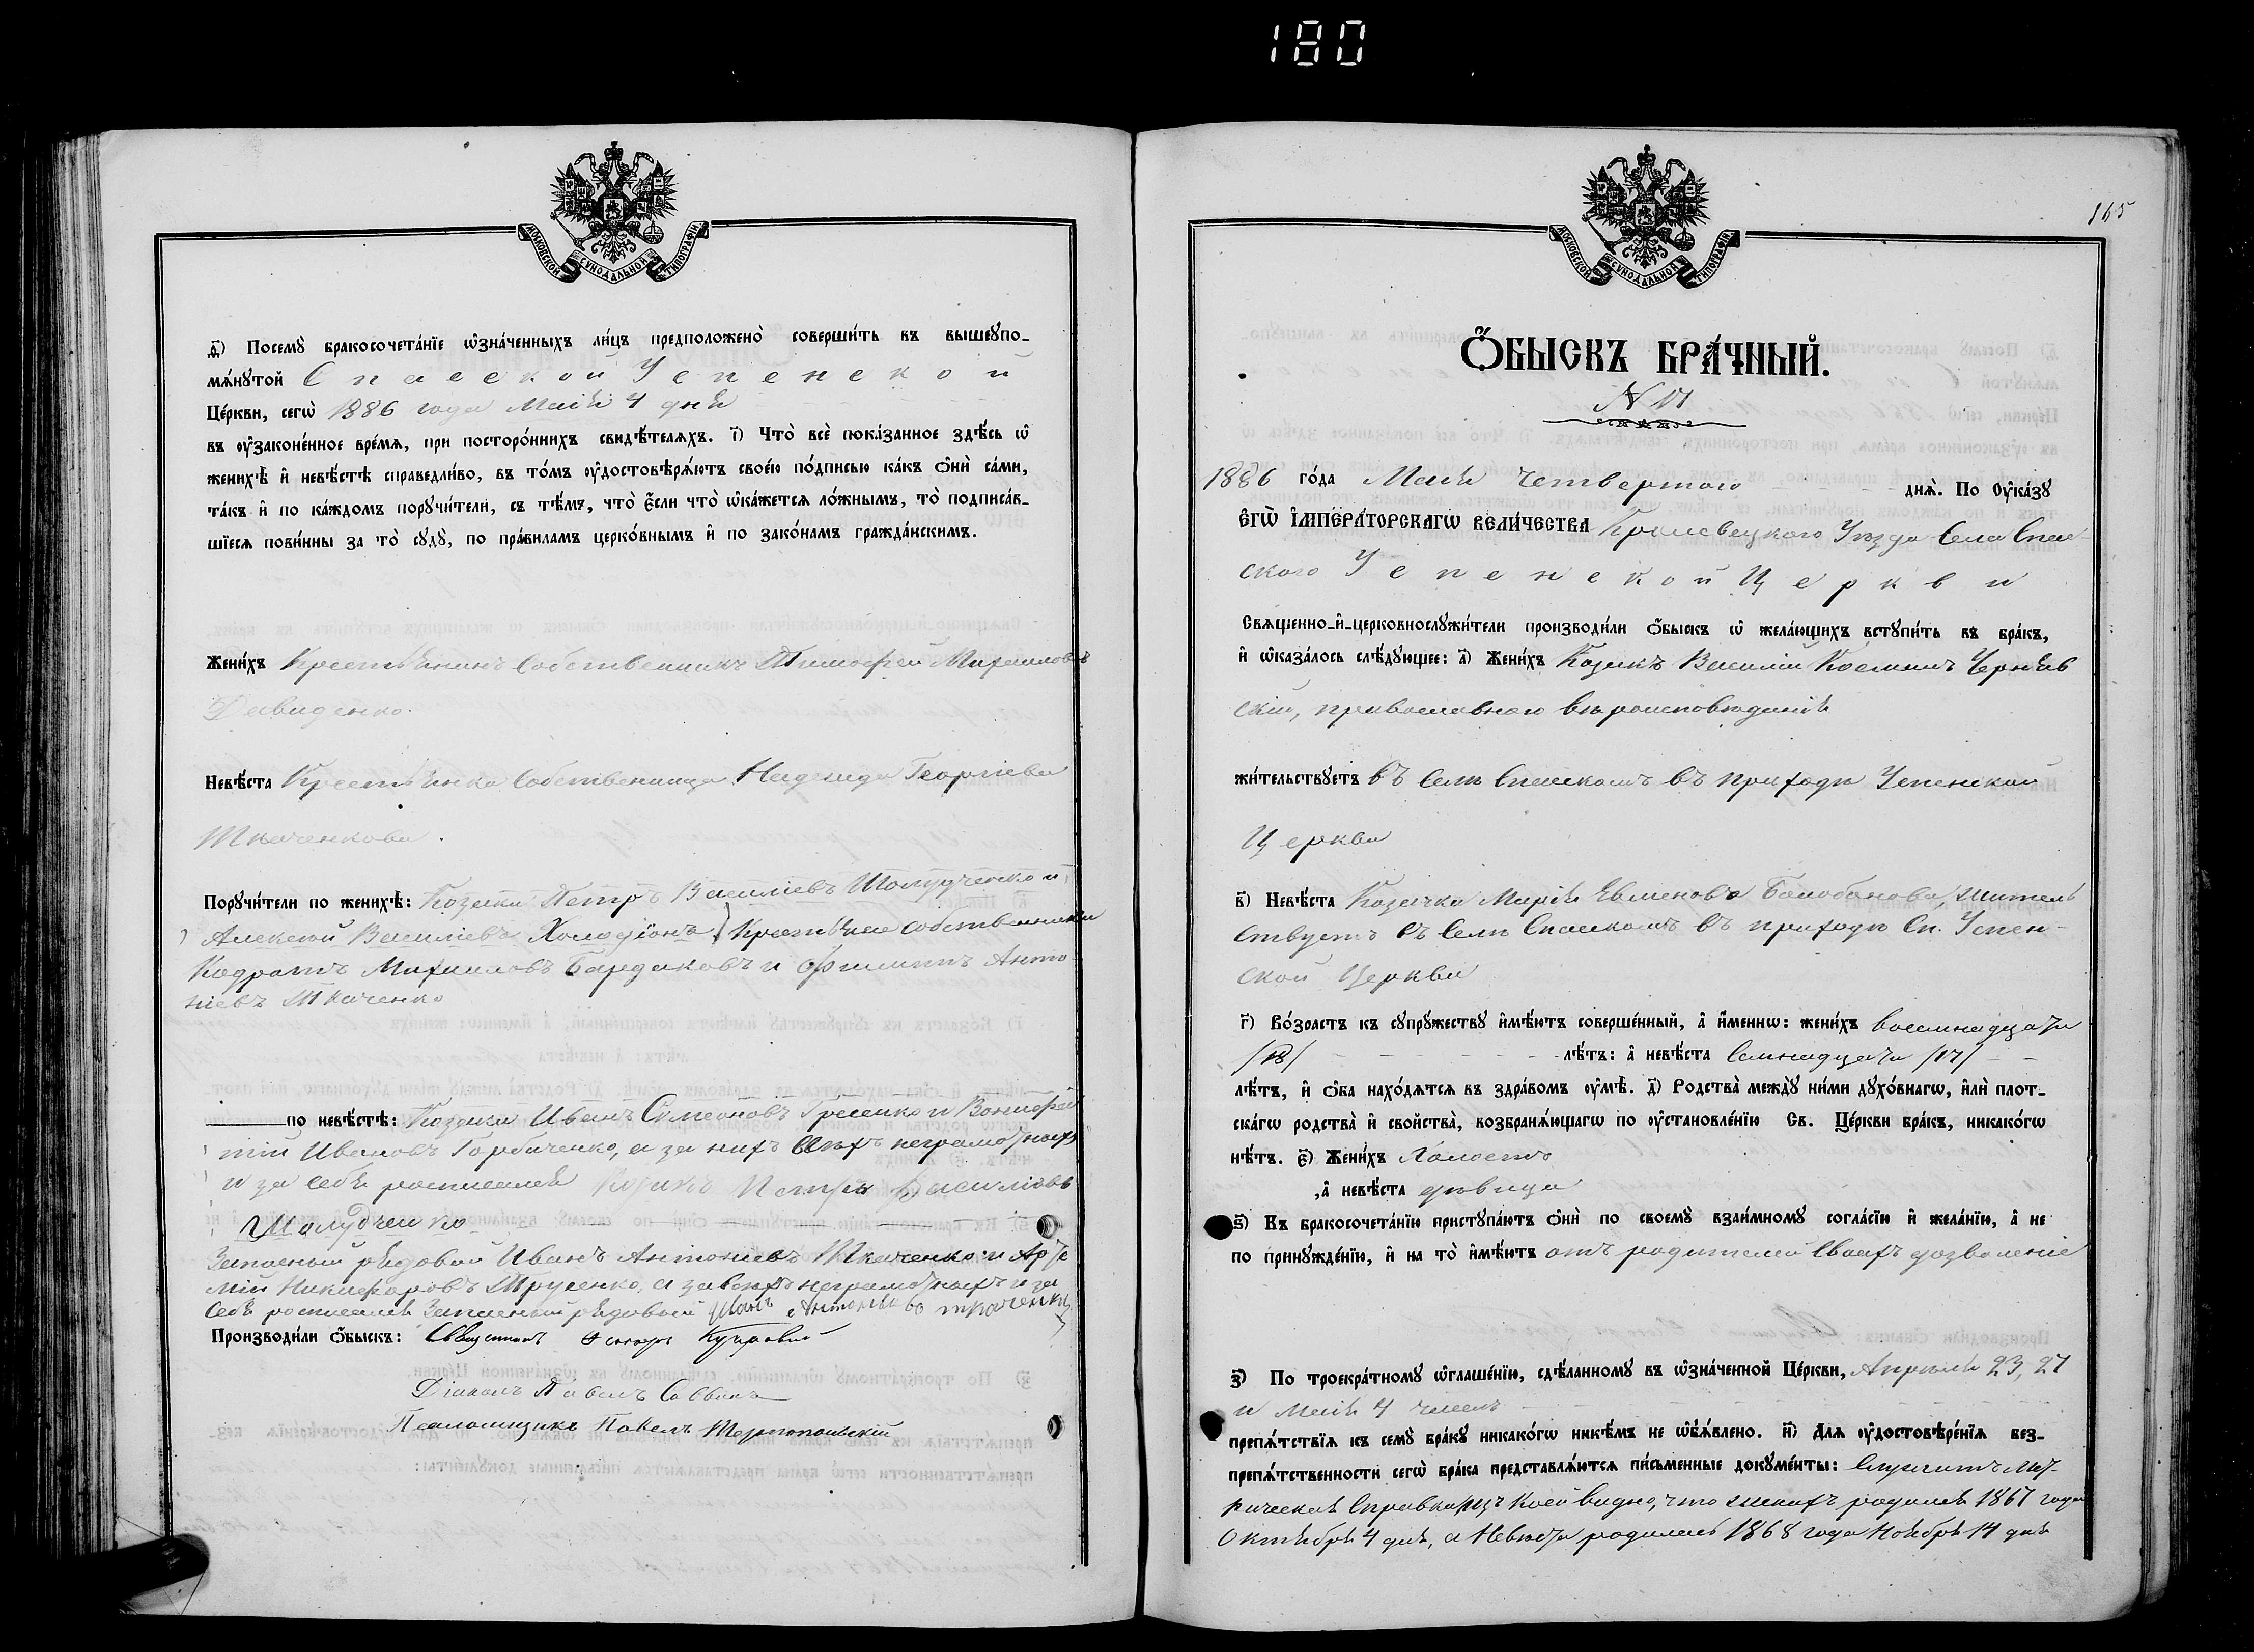 180
МОСКОВСКОЙ СѴНОДАЛЬНОЙ ТИПОГРАФІИ
д҃) Посемꙋ̀ бракосочета́нїе ѡ҆зна́ченныхъ ли́цъ предположено̀ соверши́ть въ вышеꙋпо-
мѧ́нꙋтой Спасской Успенской
Це́ркви, сегѡ̀ 1886 года Маія 4 дня
въ ᲂу҆законе́нное вре́мѧ, при посторо́ннихъ свидѣ́телѧхъ. і҃) Что̀ всѐ пока́занное здѣ́сь ѡ҆
женихѣ̀ и҆ невѣ́стѣ справедли́во, въ то́мъ ᲂу҆достовѣрѧ́ютъ свое́ю по́дписью ка́къ ѻ҆нѝ са́ми,
та́къ и҆ по ка́ждомъ порꙋчи́тели, съ тѣ́мъ, что̀ є҆́сли что̀ ѡ҆ка́жетсѧ ло́жнымъ, то̀ подписа́в-
шїесѧ пови́нны за то̀ сꙋдꙋ̀, по пра́виламъ церко́внымъ и҆ по зако́намъ гражда́нскимъ.
Жени́хъ Крестьянинъ собственникъ Тимофей Михаиловъ
Давиденко.
Невѣ́ста Крестьянка собственница Надежда Георгіева
Ткаченкова.
Порꙋчи́тели по женихѣ̀: Козаки Петръ Василіевъ Шолудченко и
Алексѣй Василіевъ Холодіонъ Крестьяне собственники
Кодратъ Михаиловъ Бардаковъ и Филиппъ Анто
ніевъ Ткаченко
по невѣ́стѣ: Козаки Иванъ Симеоновъ Гресенко и
тій Ивановъ Горбаченко, а за нихъ всѣхъ неграмотныхъ
и за себя росписался Козакъ Петръ Василіовъ
Шолудченко
Запасный рядовой Иванъ Антоніевъ Ткаченко и Арте
мій Никифоровъ Трусенко, а за всѣхъ неграмотныхъ и за
себя росписался Запасный рядовый Иванъ Антоніевъ Ткаченко
Производи́ли ѻ҆́быскъ: Священникъ
Діаконъ Павелъ Саввинъ
Псаломщикъ Павелъ Тарнопольскій
165
МОСКОВСКОЙ СѴНОДАЛЬНОЙ ТИПОГРАФІИ
Ѻ҆́БЫСКЪ БРА́ЧНЫЙ.
N 17
1886 го́да Маія четвертаго днѧ̀. По ᲂу҆ка́зꙋ
Є҆ГѠ̀ И҆МПЕРА́ТОРСКАГѠ ВЕЛИ́ЧЕСТВА Кролевецкого Уѣзда Села Спас-
ского Успенской Церкви
Свѧще́нно-и҆-церковнослꙋжи́тели производи́ли ѻ҆́быскъ ѡ҆ жела́ющихъ встꙋпи́ть въ бра́къ,
и҆ ѡ҆каза́лось слѣ́дꙋющее: а҃) Жени́хъ Козакъ Василій Косминъ Черняв
скій, православнаго вѣроисповѣданія
жи́тельствꙋетъ въ Селѣ Спаскомъ въ приходѣ Успенской
Церкви
в҃) Невѣ́ста Козачка Марія Евменова Балобанова, житель
ствуетъ въ Селѣ Спаскомъ въ приходѣ Сп. Успен-
ской Церкви
г҃) Во́зрастъ къ сꙋпрꙋ́жествꙋ и҆мѣ́ютъ соверше́нный, а҆ и҆́меннѡ: жени́хъ восемнадцати
/18/ лѣ́тъ: а҆ невѣ́ста семнадцати /17/
лѣ́тъ, и҆ ѻ҆́ба нахо́дѧтсѧ въ здра́вомъ ᲂу҆мѣ̀. д҃) Родства̀ междꙋ̀ ни́ми дꙋхо́внагѡ, и҆лѝ плот-
ска́гѡ родства̀ и҆ свойства̀, возбранѧ́ющагѡ по ᲂу҆становле́нїю Св. Це́ркви бра́къ, никако́гѡ
нѣ́тъ. є҃) Жени́хъ Холостъ
, а҆ невѣ́ста дѣвица
ѕ҃) Къ бракосочета́нїю пристꙋпа́ютъ ѻ҆нѝ по своемꙋ̀ взаи́мномꙋ согла́сїю и҆ жела́нїю, а҆ не
по принꙋжде́нїю, и҆ на то̀ и҆мѣ́ютъ отъ родителей своихъ дозволеніе
з҃) По троекра́тномꙋ ѡ҆глаше́нїю, сдѣ́ланномꙋ въ ѡ҆зна́ченной Це́ркви, Апрѣля 23, 27
и Маія 4 чиселъ
препѧ́тствїѧ къ семꙋ̀ бра́кꙋ никако́гѡ никѣ́мъ не ѡ҆б̾ѧ́влено. и҃) Длѧ ᲂу҆достовѣре́нїѧ без-
препѧ́тственности сегѡ̀ бра́ка представлѧ́ютсѧ пи́сьменные докꙋме́нты: Служитъ Мет-
рическая справка, изъ коей видно, что женихъ родился 1867 года
Октября 4 дня, а Невѣста родилась 1868 года Ноября 14 дня